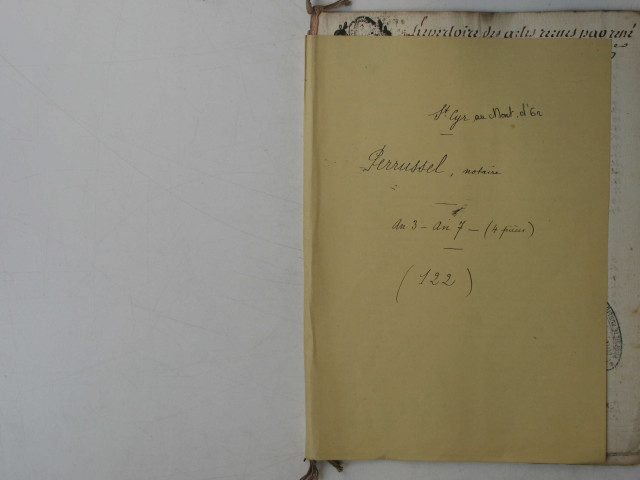 Répertoire des actes recus par
St Cyr au Mont d'Or
Perrussel, notaire
An 3 - An 7 - (4 pièces)
(122)